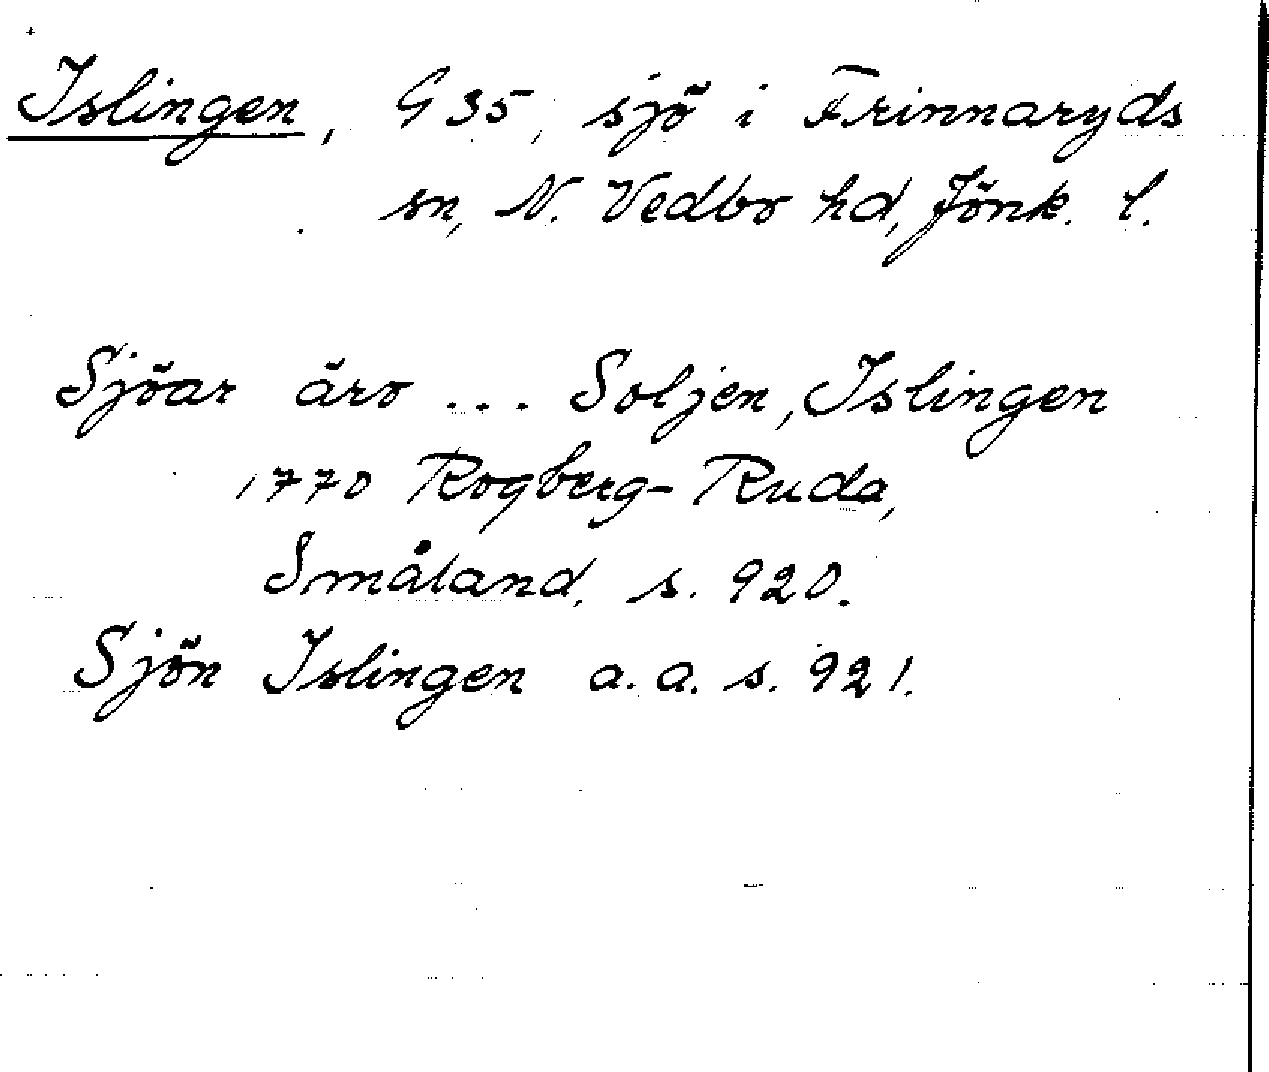 Islingen, G 35, sjö i Frinnaryds
sn, N. Vedbo hd, Jönk. l.
Sjöar äro ... Soljen, Islingen
1770 Rogberg-Ruda,
Småland, s. 920.
Sjön Islingen a.a. s. 921.